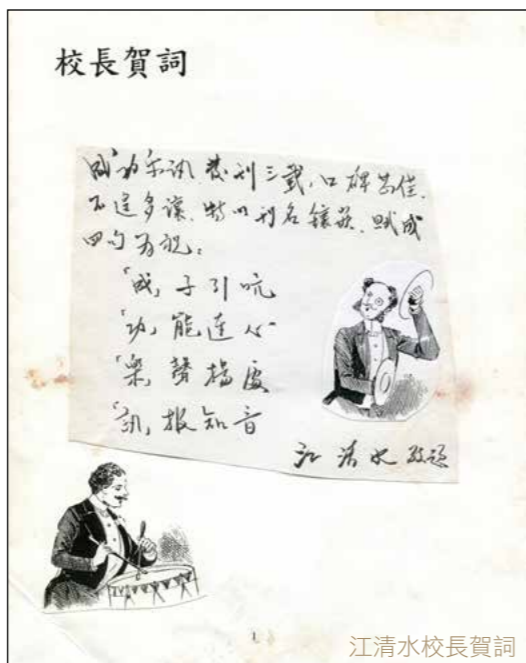 校長賀詞
成功樂訊，發刊三載，口碑甚佳，
不遑多讓，特以刊名鑲嵌，賦成
四句為祝：
「成」子引吭
「功」能連心
「樂」聲播處
「訊」報知音
江清水 敬題
1
江清水校長賀詞